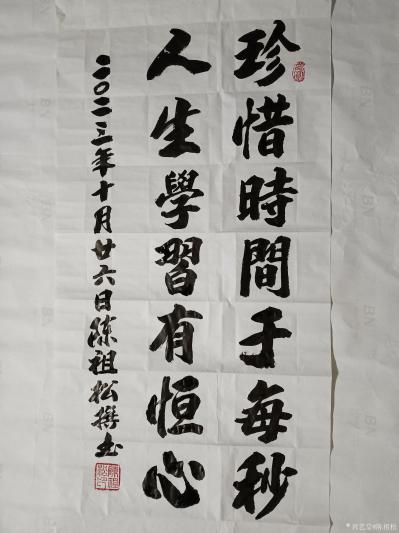 珍惜時間于每秒
人生學習有恒心
二〇二三年十月廿六日陳祖松撰书